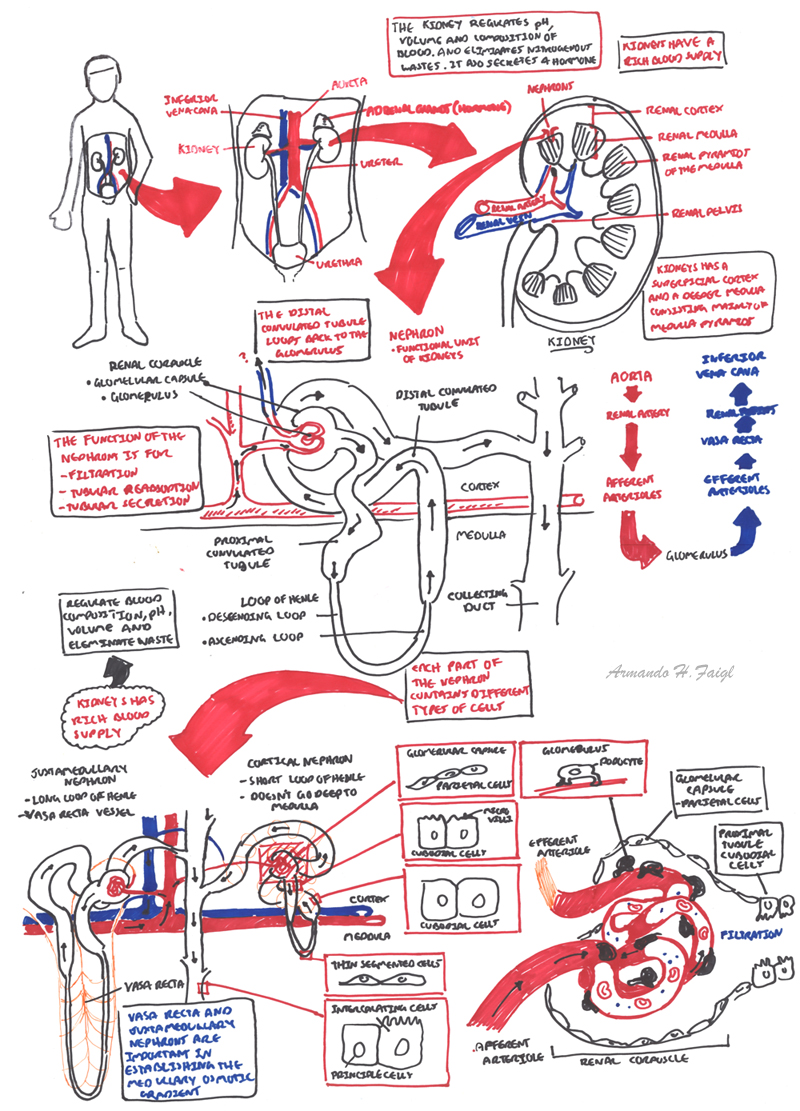 THE KIDNEY REGULATES pH,
VOLUME AND COMPOSITION OF
BLOOD. AND ELIMINATES NITROGENOUS
WASTES. IT ALSO SECRETES A HORMONE
KIDNEYS HAVE A
RICH BLOOD SUPPLY
AORTA
INFERIOR
VENA CAVA
ADRENAL GLANDS (HORMONE)
KIDNEY
URETER
URETHRA
NEPHRONS
RENAL CORTEX
RENAL MEDULLA
RENAL PYRAMIDS
OF THE MEDULLA
RENAL ARTERY
RENAL VEIN
RENAL PELVIS
KIDNEYS HAS A
SUPERFICIAL CORTEX
AND A DEEPER MEDULA
CONSISTING MAINLY OF
MEDULA PYRAMIDS
KIDNEY
THE DISTAL
CONVULATED TUBULE
LOOPS BACK TO THE
GLOMERULUS
NEPHRON
• FUNCTIONAL UNIT
OF KIDNEYS
?
RENAL CORPUSCLE
• GLOMELULAR CAPSULE
• GLOMERULUS
DISTAL CONVULATED
TUBULE
THE FUNCTION OF THE
NEPHRON IS FOR
- FILTRATION
- TUBULAR READSORPTION
- TUBULAR SECRETION
CORTEX
MEDULLA
PROXIMAL
CONVULATED
TUBULE
LOOP OF HENLE
• DESCENDING LOOP
• ASCENDING LOOP
COLLECTING
DUCT
AORTA
RENAL ARTERY
AFFERENT
ARTERIOLES
GLOMERULUS
EFFERENT
ARTERIOLES
VASA RECTA
RENAL
INFERIOR
VENA CAVA
REGULATE BLOOD
COMPOSITION, pH,
VOLUME AND
ELEMINATE WASTE
KIDNEYS HAS
RICH BLOOD
SUPPLY
EACH PART OF
THE NEPHRON
CONTAINS DIFFERENT
TYPES OF CELLS
Armando H. Faigl
JUXTAMEDULLARY
NEPHRON
- LONG LOOP OF HENLE
- VASA RECTA VESSEL
CORTICAL NEPHRON
- SHORT LOOP OF HENLE
- DOESN'T GO DEEP TO
MEDULA
GLOMERULAR CAPSULE
PARIETAL CELLS
MICRO
VILLI
CUBODIAL CELLS
CUBODIAL CELLS
CORTEX
MEDULA
VASA RECTA
VASA RECTA AND
JUXTAMEDULLARY
NEPHRONS ARE
IMPORTANT IN
ESTABLISHING THE
MEDULLARY OSMOTIC
GRADIENT
THIN SEGMENTED CELLS
INTERCALATING CELLS
PRINCIPLE CELLS
GLOMERULUS
PODOCYTE
GLOMELULAR
CAPSULE
- PARIETAL CELLS
PROXIMAL
TUBULE
CUBODIAL
CELLS
EFFERENT
ARTERIOLE
FILTRATION
AFFERENT
ARTERIOLE
RENAL CORPUSCLE